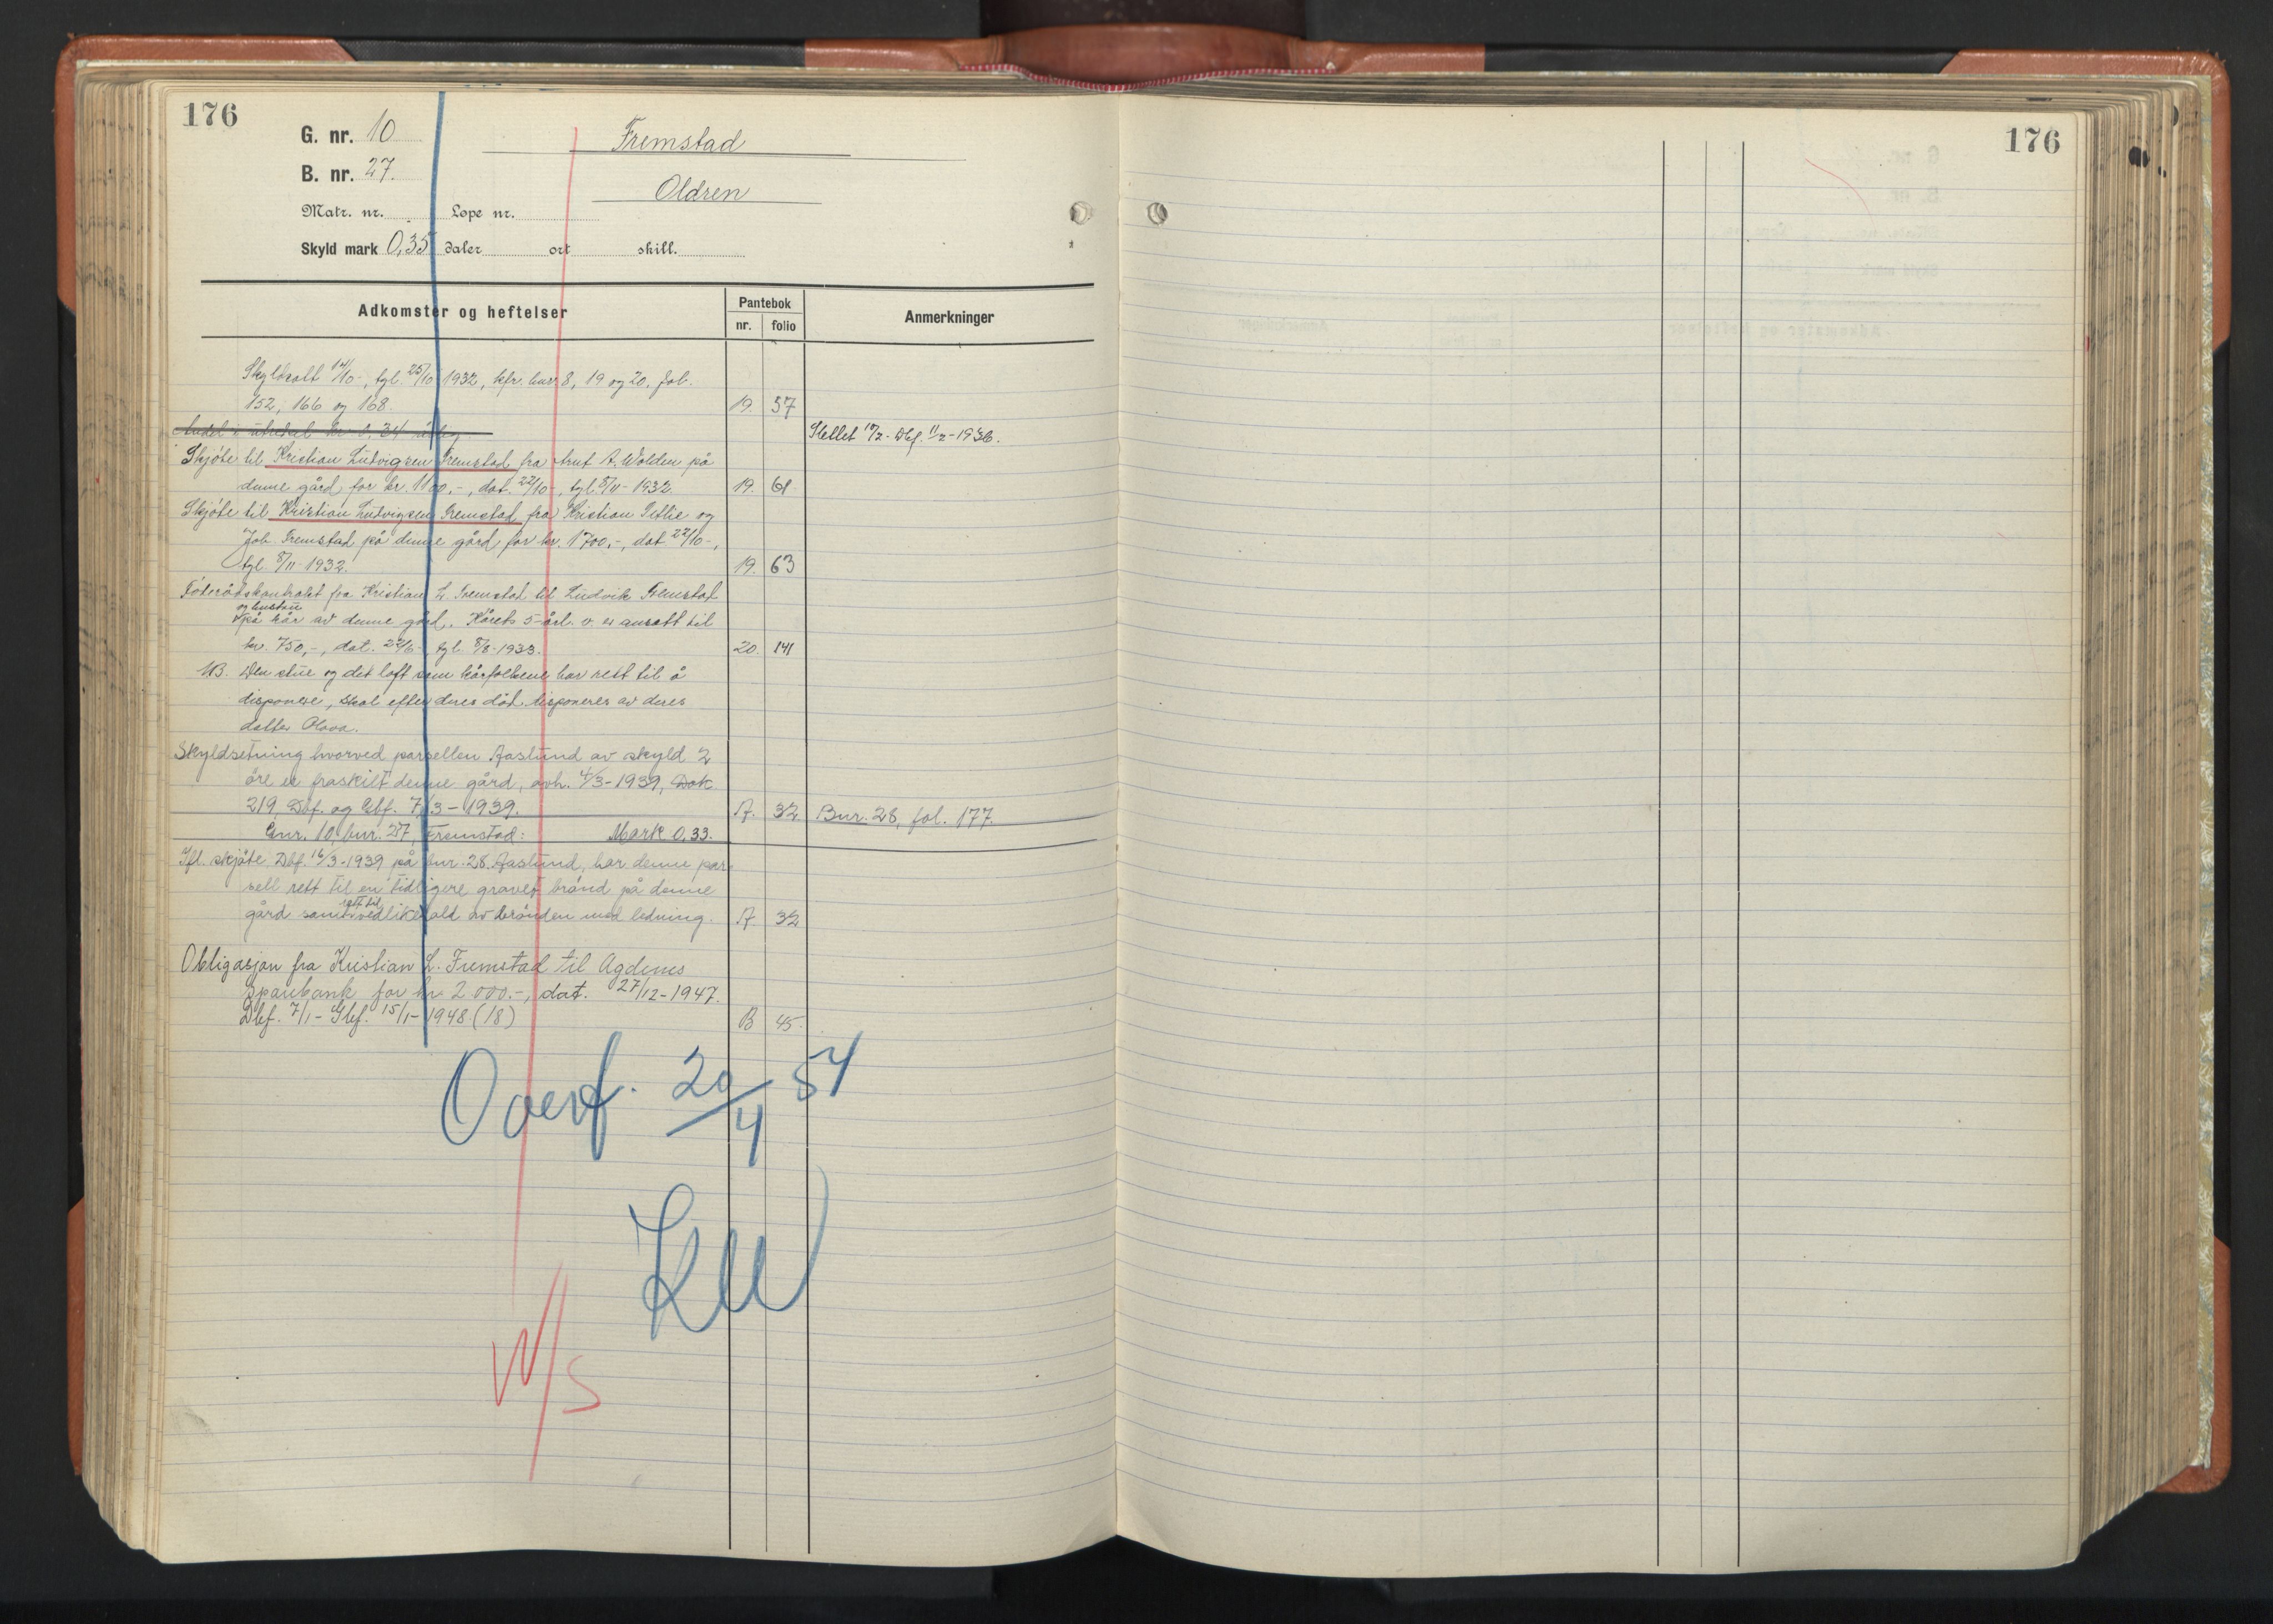 176
G. nr. 10
Fremstad
B. nr. 27.
Oldren
Matr. nr. Løpe nr.
Skyld mark 0,35 daler ort skill.
Adkomster og heftelser
Pantebok
nr. folio
Anmerkninger
Skyldsatt 14/10-, tgl. 25/10 1932, kfr. bnr. 8, 19 og 20, fol.
152, 166 og 168. 19. 57
Andel i utredsel kr. 0,34 årlig Slettet 17/2. Dbf. 11/2-1936.
Skjøte til Kristian Ludvigsen Fremstad fra Arnt A. Wolden på
denne gård for kr. 1100.-, dat. 22/10-, tgl. 8/11-1932. 19. 61
Skjøte til Kristian Ludvigsen Fremstad fra Kristian Setlie og
Joh. Fremstad på denne gård for kr. 1700.-, dat. 22/10-,
tgl. 8/11-1932. 19. 63
Føderådskontrakt fra Kristian L. Fremstad til Ludvik Fremstad
og hustru
på kår av denne gård. Kårets 5-årl. v. er ansatt til
kr. 750,-, dat. 22/6-, tgl. 8/8-1933. 20. 141
NB. Den stue og det loft som kårfolkene har rett til å
disponere, skal efter deres død disponeres av deres
datter Olava.
Skyldsetning hvorved parsellen Aaslund av skyld 2
øre er fraskilt denne gård, avh. 4/3-1939, Dok.
219, Dbf. og Gbf. 7/3-1939. A. 32 Bnr. 28, fol. 177.
Gnr. 10, bnr. 27, Fremstad: Mark 0.33.
Ifl. skjøte Dbf. 16/3-1939 på bnr. 28 Aaslund, har denne par-
sell rett til en tidligere gravet brønd på denne
rett til
gård samt vedlikehold av brønden med ledning. A 32
Obligasjon fra Kristian L. Fremstad til Agdenes
Sparebank for kr. 2.000.-, dat. 27/12-1947.
Dbf. 7/1- Gbf. 15/1-1948 (18) B 45.
Overf. 20/4 54
KW
176